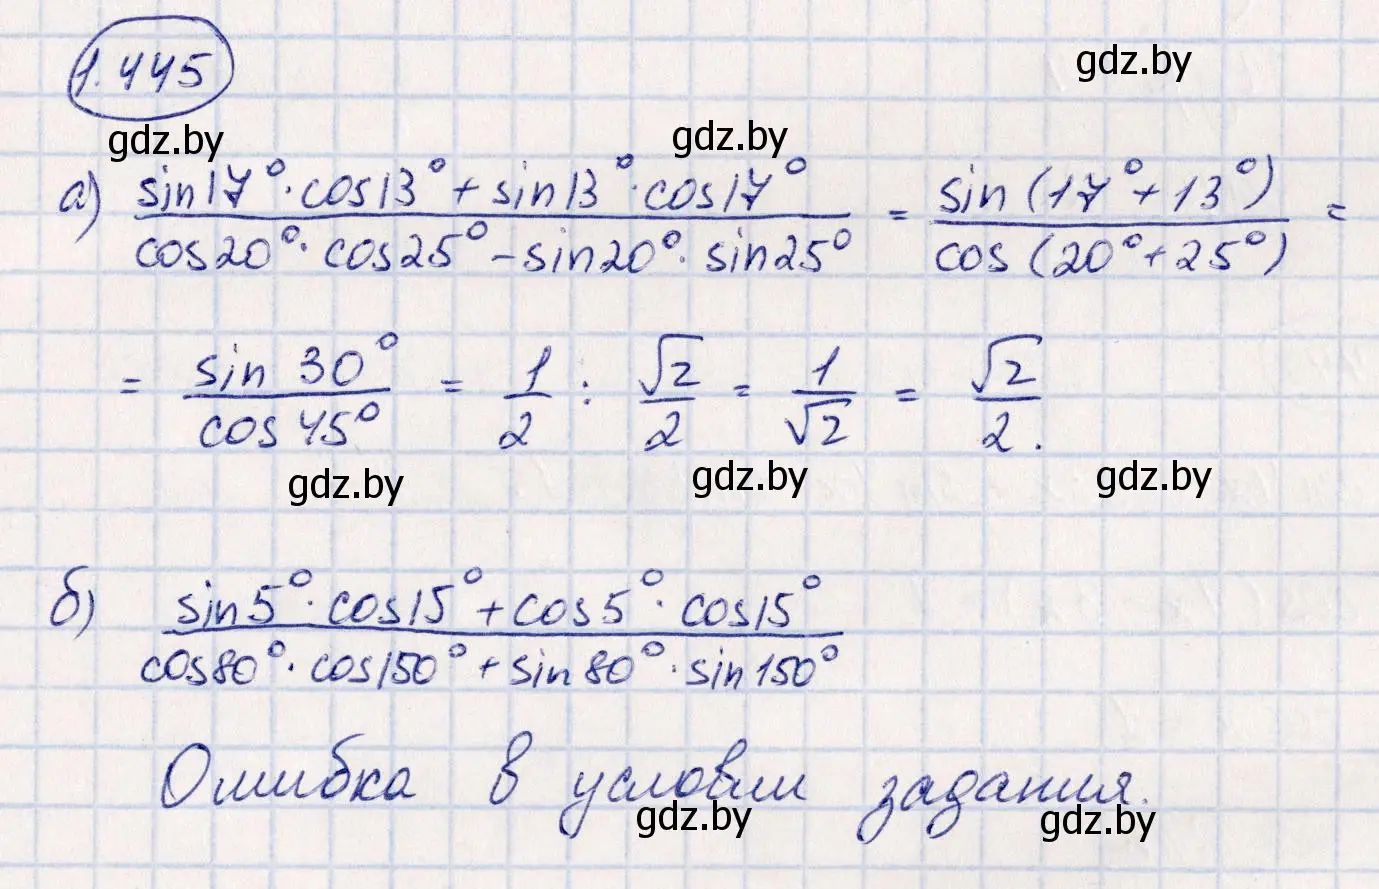 1.445
gdz.by
gdz.by gdz.by
а) sin17°·cos13°+sin13°·cos17° / cos20°·cos25°-sin20°·sin25° = sin(17°+13°) / cos(20°+25°) =
= sin 30° / cos 45° = 1/2 : √2/2 = 1/√2 = √2/2.
gdz.by gdz.by gdz.by
б) sin5°·cos15°+cos5°·cos15° / cos80°·cos150°+sin80°·sin150°
Ошибка в условии задания.
gdz.by gdz.by